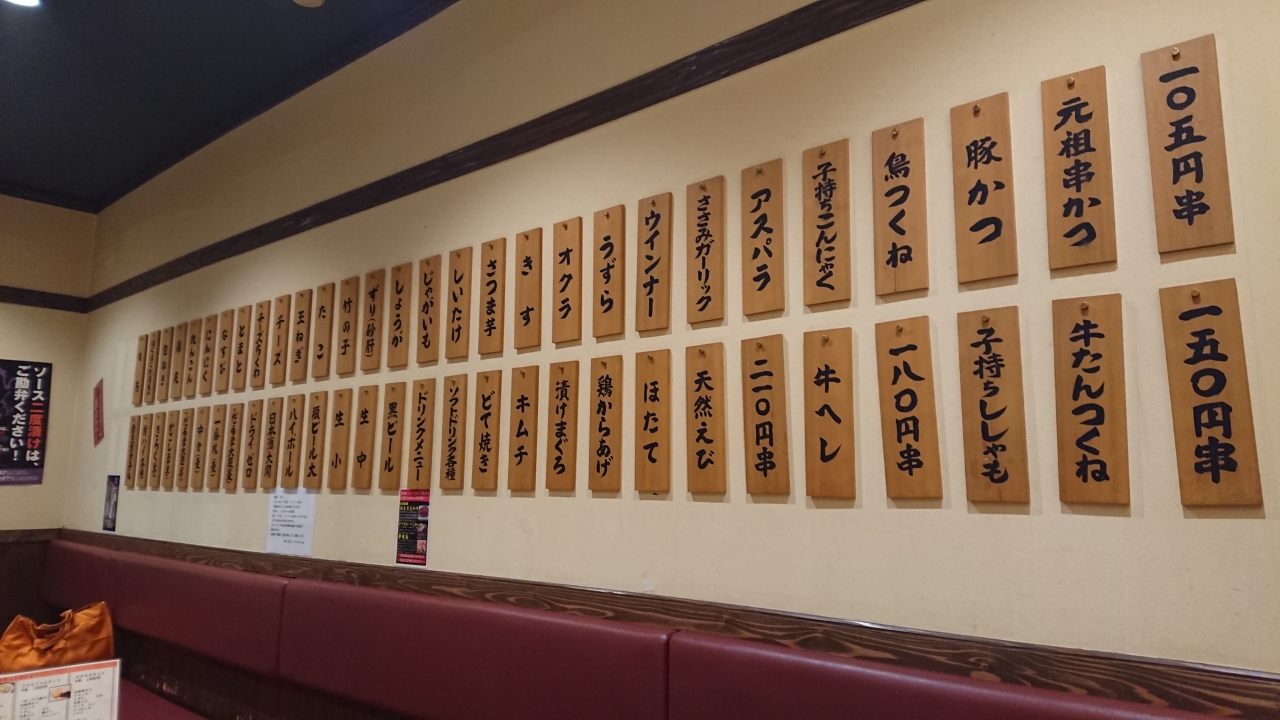 一〇五円串
元祖串かつ
豚かつ
鳥つくね
子持ちこんにゃく
アスパラ
ささみガーリック
ウインナー
うずら
オクラ
きす
さつま芋
しいたけ
じゃがいも
しょうが
ずり(砂肝)
竹の子
たこ
玉ねぎ
チーズ
チーズちくわ
とまと
なすび
にんにく
れんこん
一五〇円串
牛たんつくね
子持ちししゃも
一八〇円串
牛ヘレ
二一〇円串
天然えび
ほたて
鶏からあげ
漬けまぐろ
キムチ
どて焼き
ソフトドリンク各種
ドリンクメニュー
黒ビール
生中
生小
瓶ビール大
ハイボール
ドライゼロ
ソース二度漬けは、
ご勘弁ください!